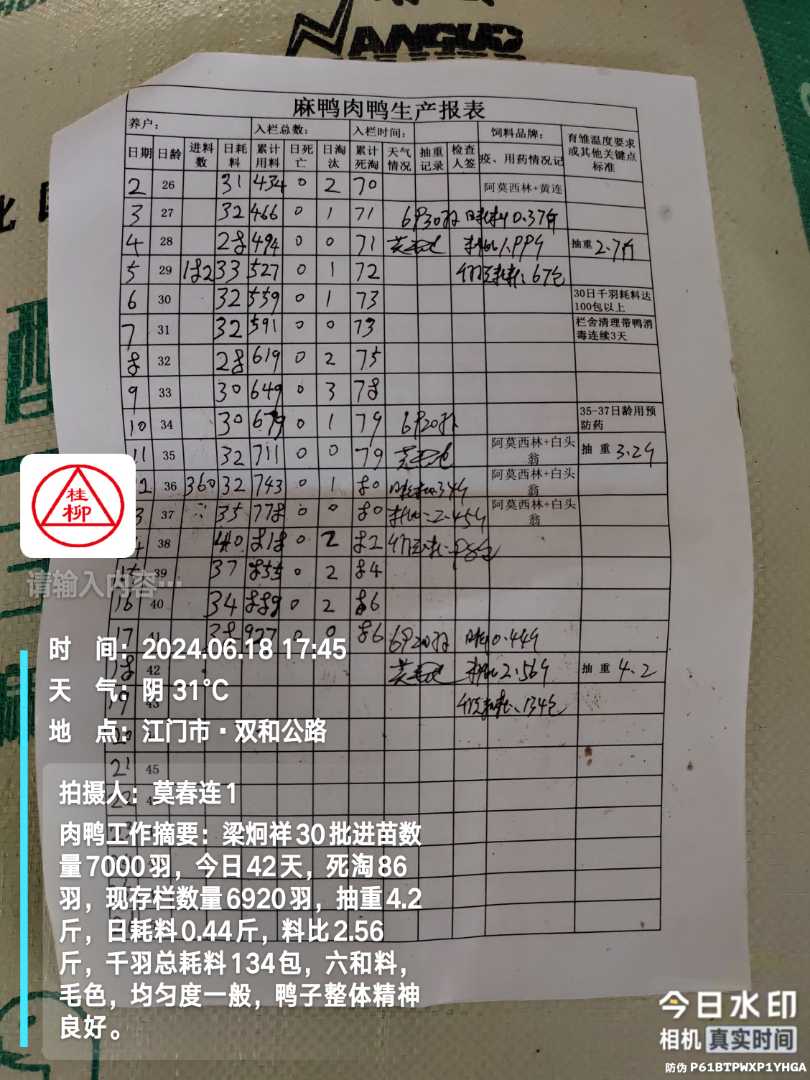 NANGUO
麻鸭肉鸭生产报表
养户: 入栏总数: 入栏时间: 饲料品牌: 育雏温度要求或其他关键点标准
日期 日龄 进料数 日耗料 累计用料 日死亡 日淘汰 累计死淘 天气情况 抽重记录 检查人签 疫、用药情况记
2 26 31 434 0 2 70 阿莫西林+黄连
3 27 32 466 0 1 71 6930羽 日耗料0.37斤
4 28 28 494 0 0 71 莫春连 料比1.99斤 抽重2.7斤
5 29 182 33 527 0 1 72 67包
6 30 32 559 0 1 73 30日千羽耗料达100包以上
7 31 32 591 0 0 73 栏舍清理带鸭消毒连续3天
8 32 28 619 0 2 75
9 33 30 649 0 3 78
10 34 30 679 0 1 79 6920羽 35-37日龄用预防药
11 35 32 711 0 0 79 莫春连 阿莫西林+白头翁 抽重 3.2斤
36 360 32 743 0 1 80 阿莫西林+白头翁
37 35 778 0 0 80 料比:2.45斤 阿莫西林+白头翁
38 40 818 0 2 82
15 39 37 855 0 2 84
16 40 34 889 0 2 86
17 41 38 927 0 0 86 6920羽 日耗0.44斤
18 42 莫春连 料比2.56斤 抽重 4.2
19 43 134包
21 45
桂柳
请输入内容…
时 间:2024.06.18 17:45
天 气:阴 31℃
地 点:江门市·双和公路
拍摄人:莫春连1
肉鸭工作摘要:梁炯祥30批进苗数
量7000羽,今日42天,死淘86
羽,现存栏数量6920羽,抽重4.2
斤,日耗料0.44斤,料比2.56
斤,千羽总耗料134包,六和料,
毛色,均匀度一般,鸭子整体精神
良好。
今日水印
相机 真实时间
防伪 P61BTPWXP1YHGA